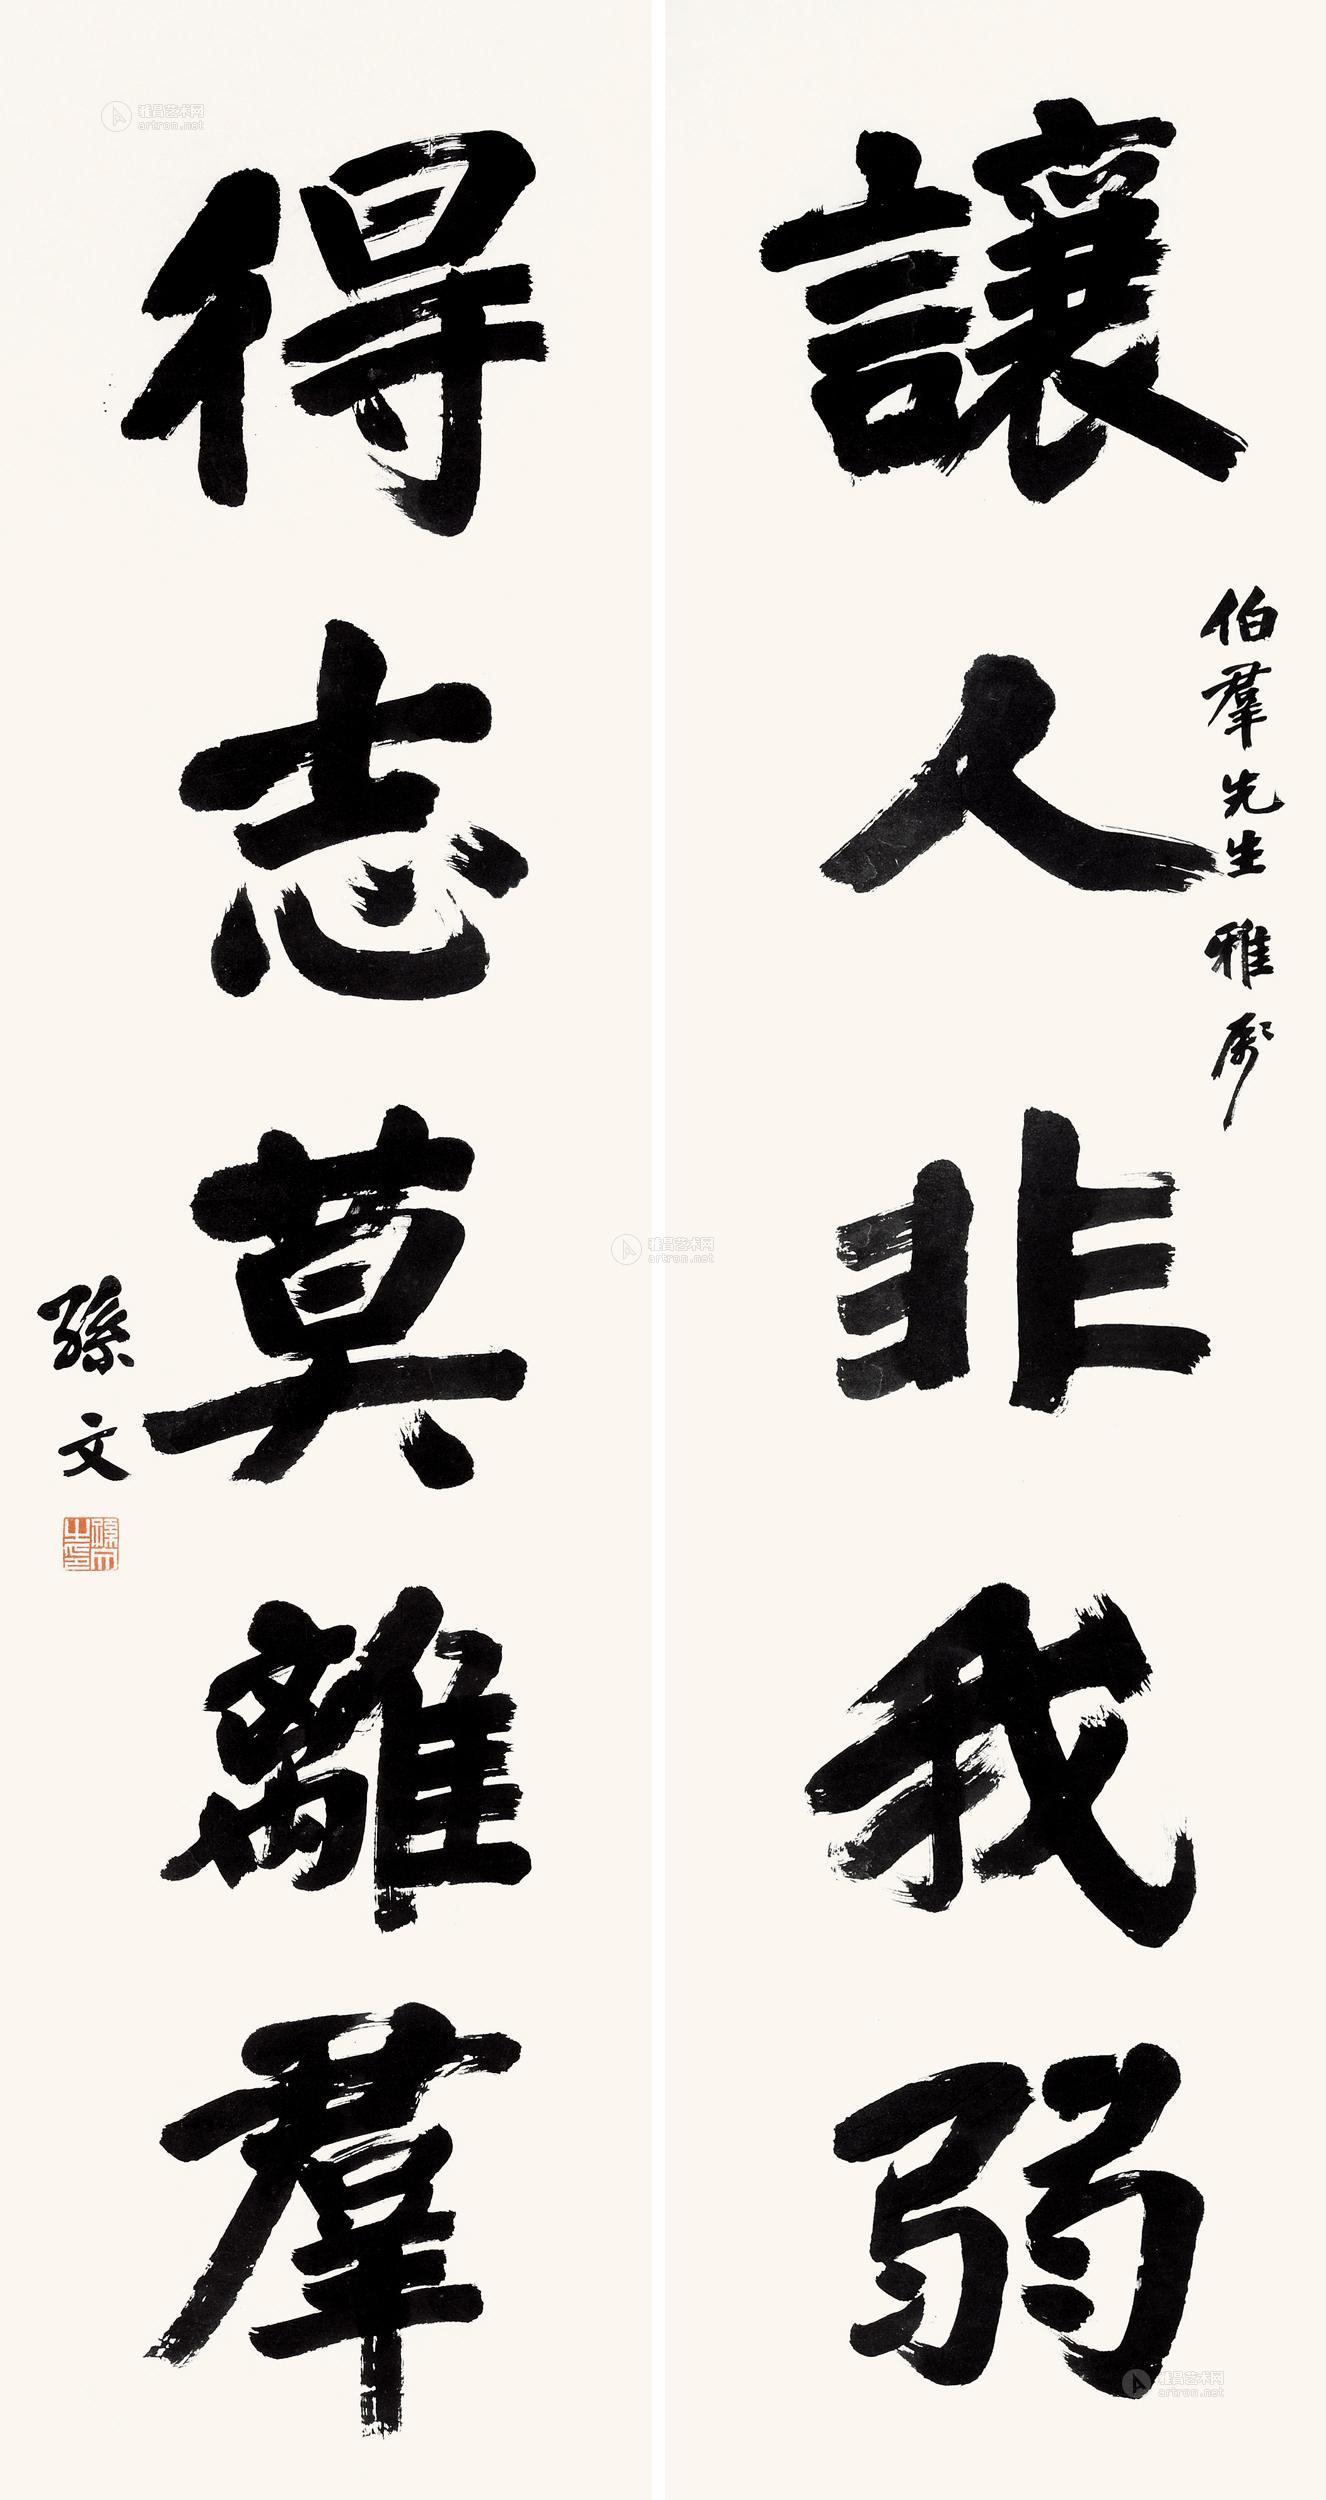 讓人非我弱
伯羣先生雅屬
得志莫離羣
孫文
孫文之印
雅昌艺术网
artron.net
雅昌艺术网
artron.net
雅昌艺术网
artron.net